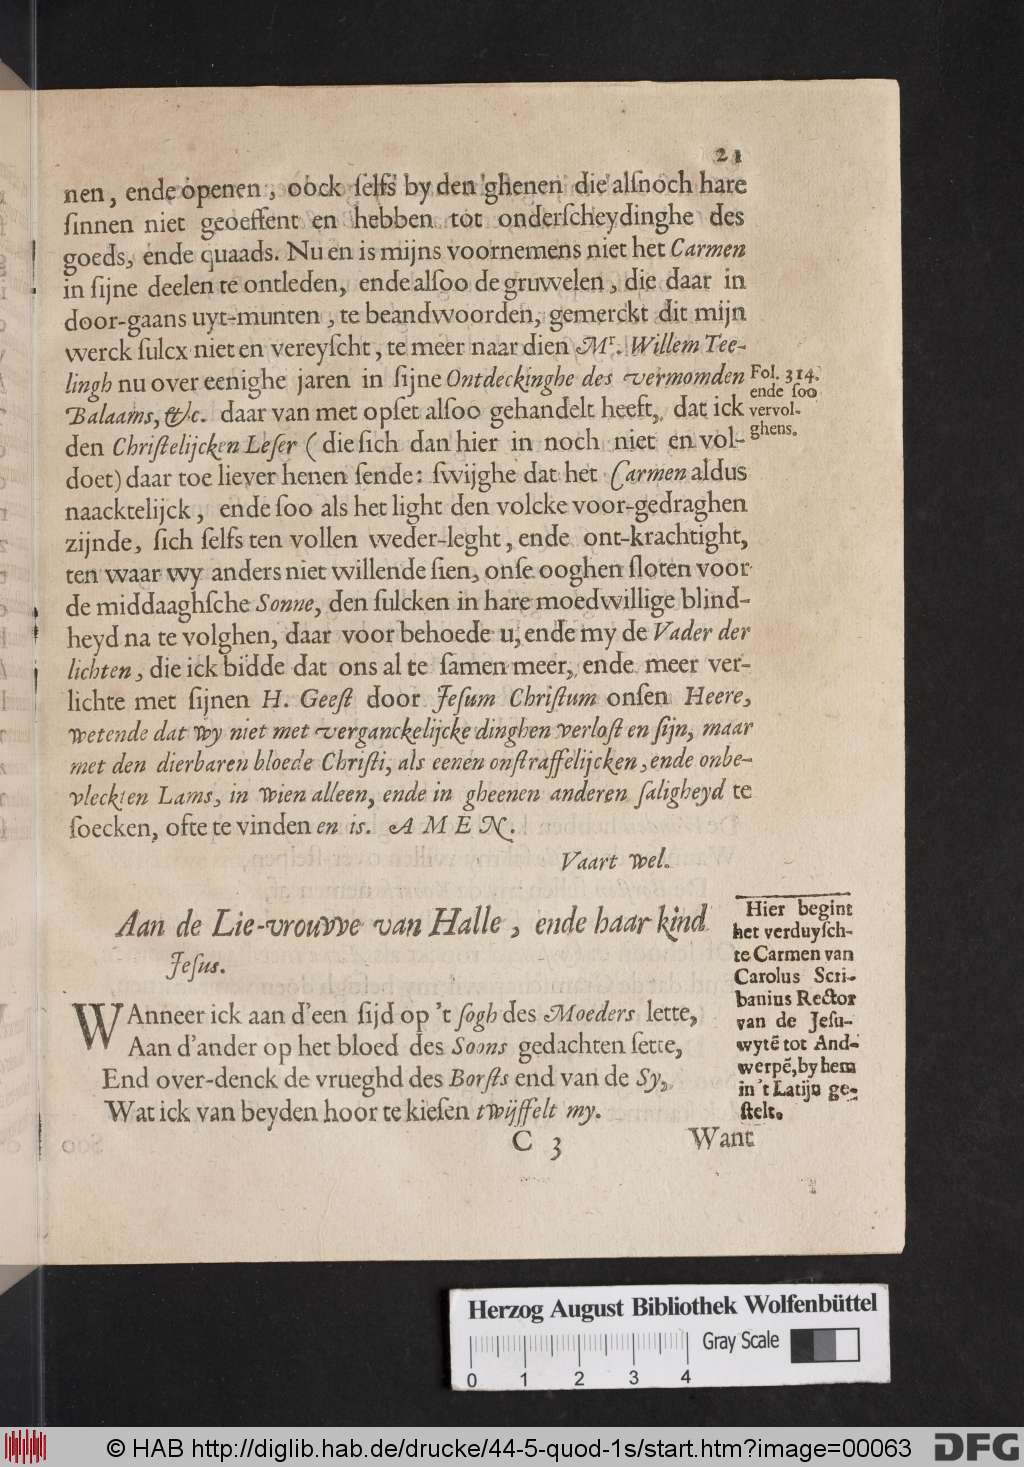 21
nen, ende openen, oock ſelfs by den ghenen die alſnoch hare
ſinnen niet geoeffent en hebben tot onderſcheydinghe des
goeds, ende quaads. Nu en is mijns voornemens niet het Carmen
in ſijne deelen te ontleden, ende alſoo de gruwelen, die daar in
door-gaans uyt-munten, te beandwoorden, gemerckt dit mijn
werck ſulcx niet en vereyſcht, te meer naar dien Mr. Willem Tee-
lingh nu over eenighe jaren in ſijne Ontdeckinghe des vermomden
Balaams, &c. daar van met opſet alſoo gehandelt heeft, dat ick
den Chriſtelijcken Leſer (die ſich dan hier in noch niet en vol-
doet) daar toe liever henen ſende: ſwijghe dat het Carmen aldus
naacktelijck, ende ſoo als het light den volcke voor-gedraghen
zijnde, ſich ſelfs ten vollen weder-leght, ende ont-krachtight,
ten waar wy anders niet willende ſien, onſe ooghen ſloten voor
de middaaghſche Sonne, den ſulcken in hare moedwillige blind-
heyd na te volghen, daar voor behoede u, ende my de Vader der
lichten, die ick bidde dat ons al te ſamen meer, ende meer ver-
lichte met ſijnen H. Geeſt door Jeſum Chriſtum onſen Heere,
wetende dat wy niet met verganckelijcke dinghen verloſt en ſijn, maar
met den dierbaren bloede Chriſti, als eenen onſtraffelijcken, ende onbe-
vleckten Lams, in wien alleen, ende in gheenen anderen ſaligheyd te
ſoecken, ofte te vinden en is. AMEN.
Vaart wel.
Fol. 314.
ende ſoo
vervol-
ghens.
Aan de Lie-vrouvve van Halle, ende haar kind
Jeſus.
WAnneer ick aan d'een ſijd op 't ſogh des Moeders lette,
Aan d'ander op het bloed des Soons gedachten ſette,
End over-denck de vrueghd des Borſts end van de Sy,
Wat ick van beyden hoor te kieſen twijffelt my.
Hier begint
het verduyſch-
te Carmen van
Carolus Scri-
banius Rector
van de Jeſu-
wytẽ tot And-
werpẽ, by hem
in 't Latijn ge-
ſtelt.
C 3
Want
Herzog August Bibliothek Wolfenbüttel
Gray Scale
0 1 2 3 4
© HAB http://diglib.hab.de/drucke/44-5-quod-1s/start.htm?image=00063
DFG